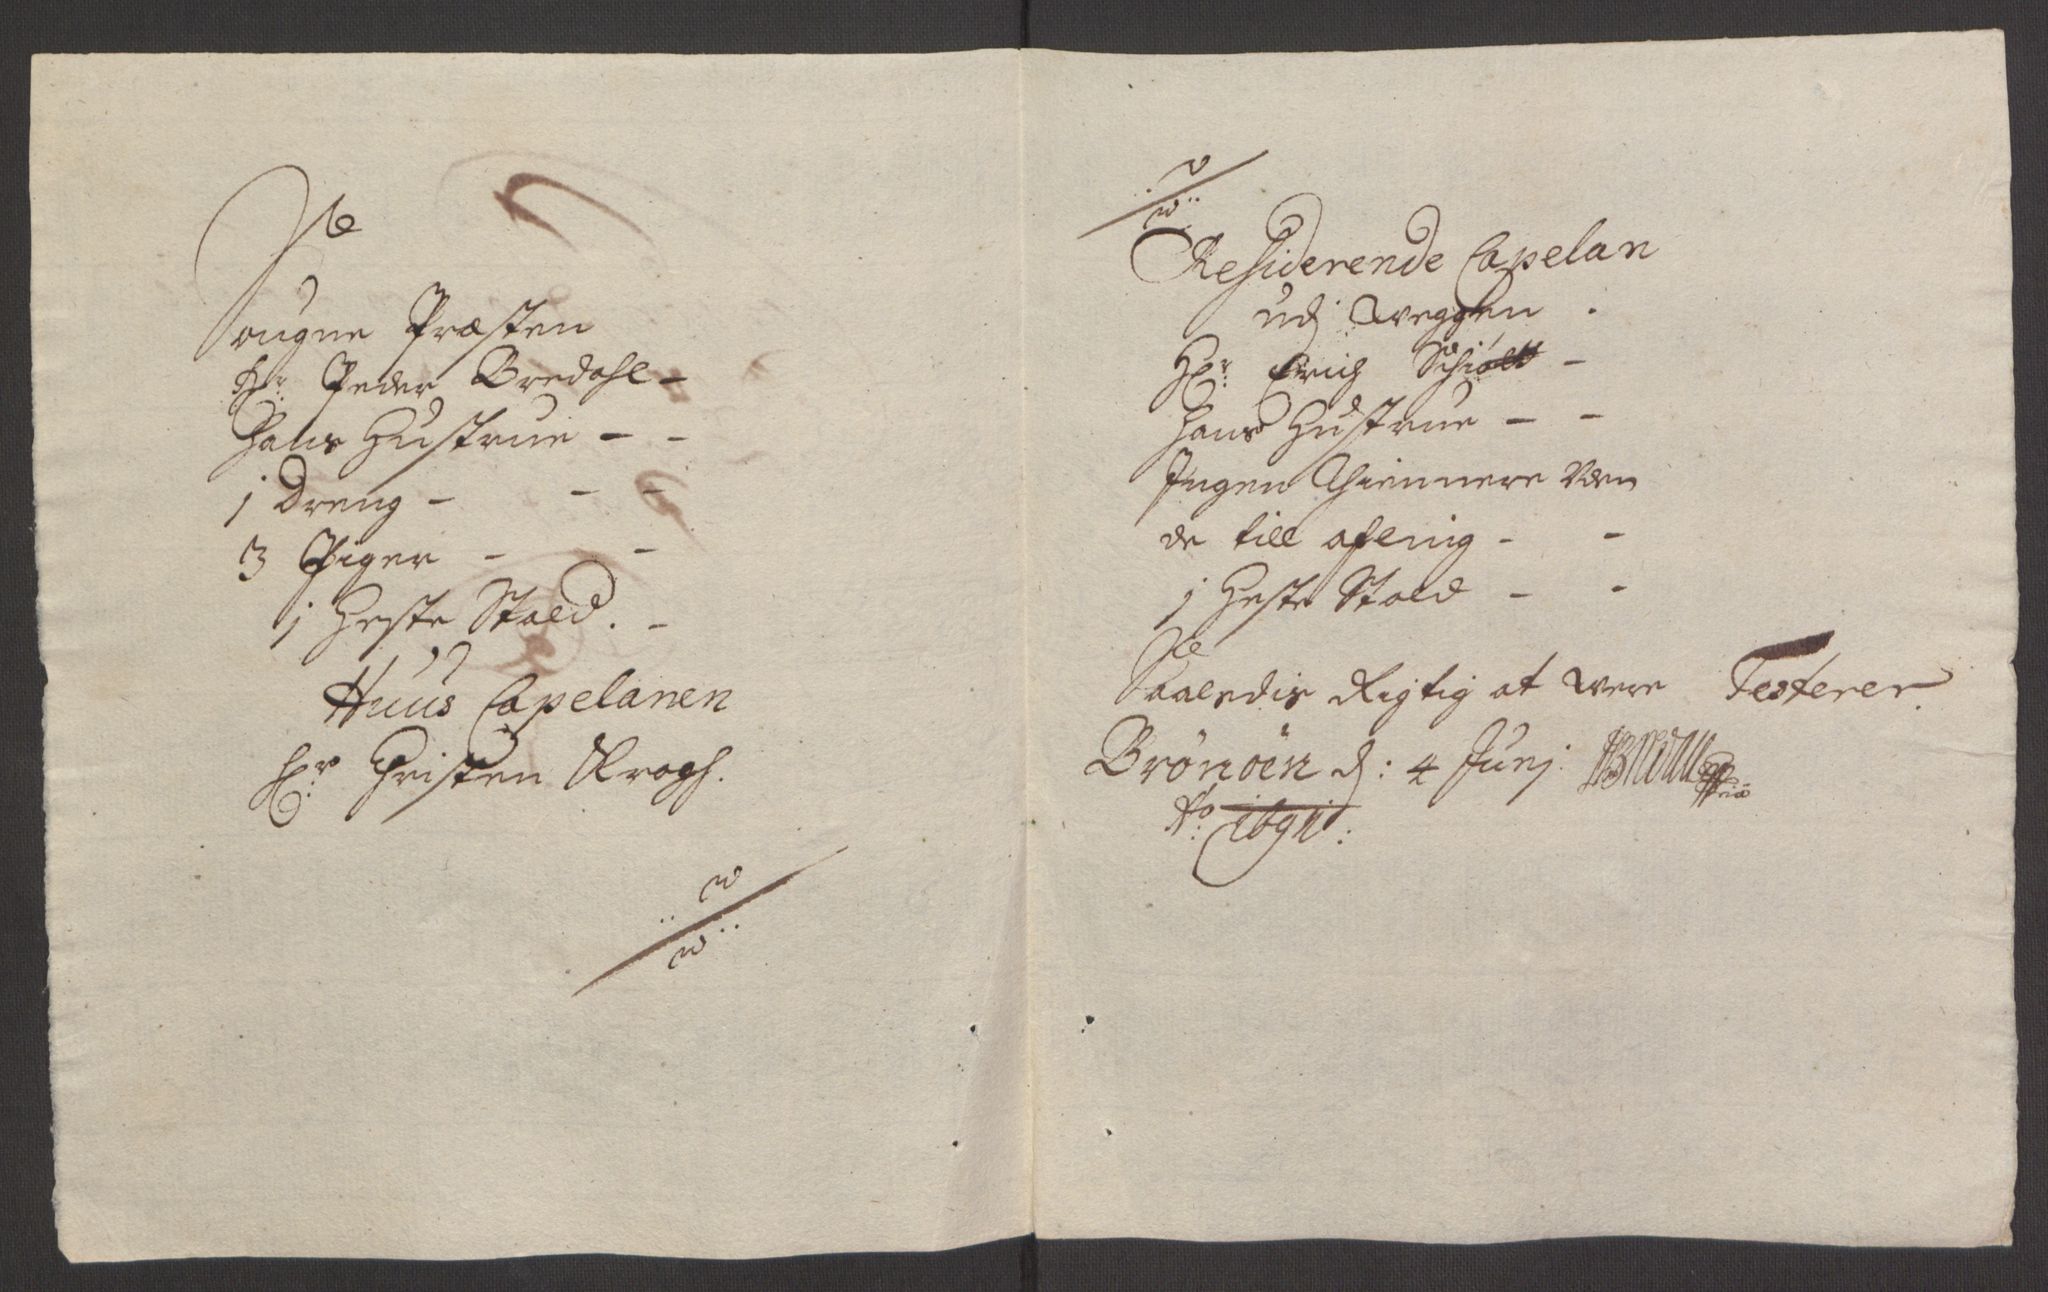 Sougne Præsten
Hr: Peder Bredahl -
Hans Hustrue - -
1 Dreng - - -
3 Piger - -
1 Heste Stald. -
Huus Capelanen
Hr: Christen Krogh.
Residerende Capelan
udj Weggen.
Hr: Erich Schiøtt -
Hans Hustrue - -
Ingen Thiennere Uden
de till afling - -
1 Heste Stald - -
Saaledis Rigtig at were Testerer.
Brønøen d: 4 Junj:
Ao: 1691: